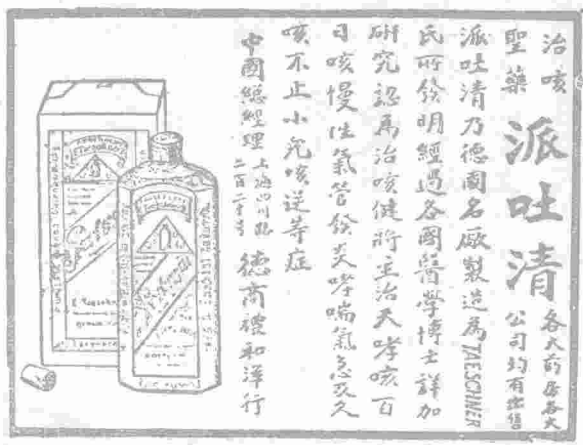 治咳
聖藥
派吐清
各大葯房各大
公司均有出售
派吐清乃德國名廠製造爲TAESCHNER
氏所發明經過各國醫學博士詳加
研究認爲治咳健將主治天哮咳百
日咳慢性氣管發炎哮喘氣急及久
咳不止小兒咳逆等症
中國總經理
上海四川路
二百二十号
德商禮和洋行